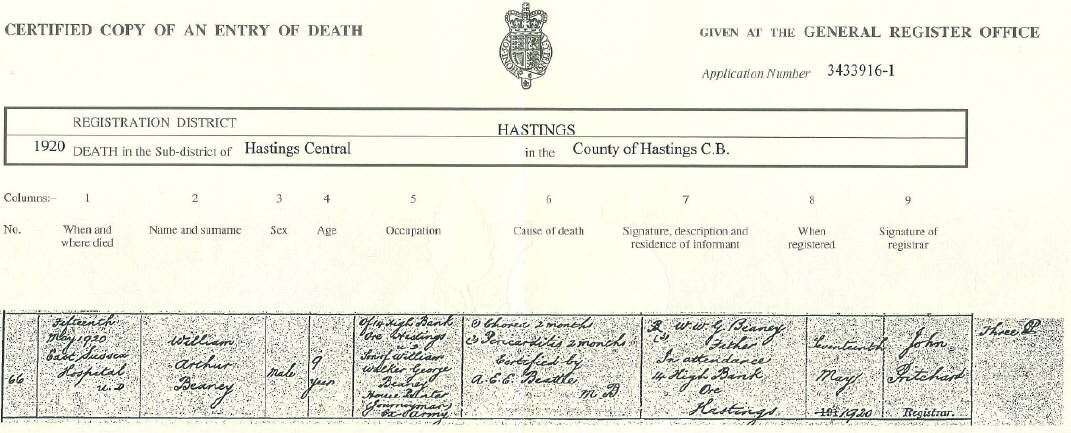 CERTIFIED COPY OF AN ENTRY OF DEATH
GIVEN AT THE GENERAL REGISTER OFFICE
Application Number 3433916-1
REGISTRATION DISTRICT HASTINGS
1920 DEATH in the Sub-district of Hastings Central in the County of Hastings C.B.
Columns:- 1 2 3 4 5 6 7 8 9
No. When and where died Name and surname Sex Age Occupation Cause of death Signature, description and residence of informant When registered Signature of registrar
66
Fifteenth
May 1920
East Sussex
Hospital
U.D
William
Arthur
Beaney
Male
9
years
Of 14 High Bank
Ore Hastings
Son of William
Walker George
Beaney
House Painter
Journeyman
Ex Army
(1) Chorea 2 months
(2) Pericarditis 2 months
Certified by
A.E.E.
M B
W W G Beaney
Father
In attendance
14 High Bank
Ore
Hastings
Seventeenth
May
1920
John
Pritchard
Registrar.
Three